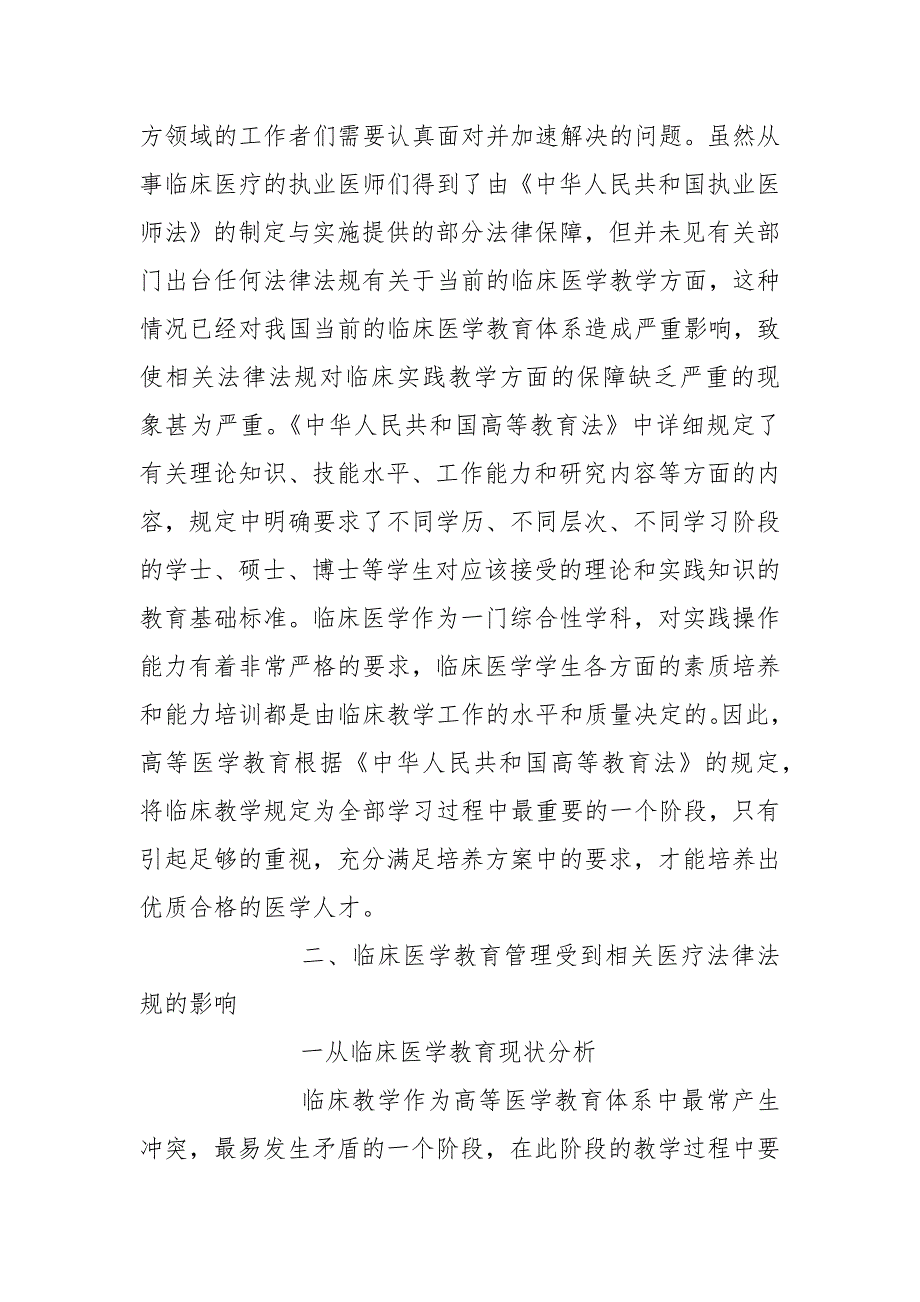 方领域的工作者们需要认真面对并加速解决的问题。虽然从
事临床医疗的执业医师们得到了由《中华人民共和国执业医
师法》的制定与实施提供的部分法律保障，但并未见有关部
门出台任何法律法规有关于当前的临床医学教学方面，这种
情况已经对我国当前的临床医学教育体系造成严重影响，致
使相关法律法规对临床实践教学方面的保障缺乏严重的现
象甚为严重。《中华人民共和国高等教育法》中详细规定了
有关理论知识、技能水平、工作能力和研究内容等方面的内
容，规定中明确要求了不同学历、不同层次、不同学习阶段
的学士、硕士、博士等学生对应该接受的理论和实践知识的
教育基础标准。临床医学作为一门综合性学科，对实践操作
能力有着非常严格的要求，临床医学学生各方面的素质培养
和能力培训都是由临床教学工作的水平和质量决定的。因此，
高等医学教育根据《中华人民共和国高等教育法》的规定，
将临床教学规定为全部学习过程中最重要的一个阶段，只有
引起足够的重视，充分满足培养方案中的要求，才能培养出
优质合格的医学人才。
二、临床医学教育管理受到相关医疗法律法
规的影响
一从临床医学教育现状分析
临床教学作为高等医学教育体系中最常产生
冲突，最易发生矛盾的一个阶段，在此阶段的教学过程中要